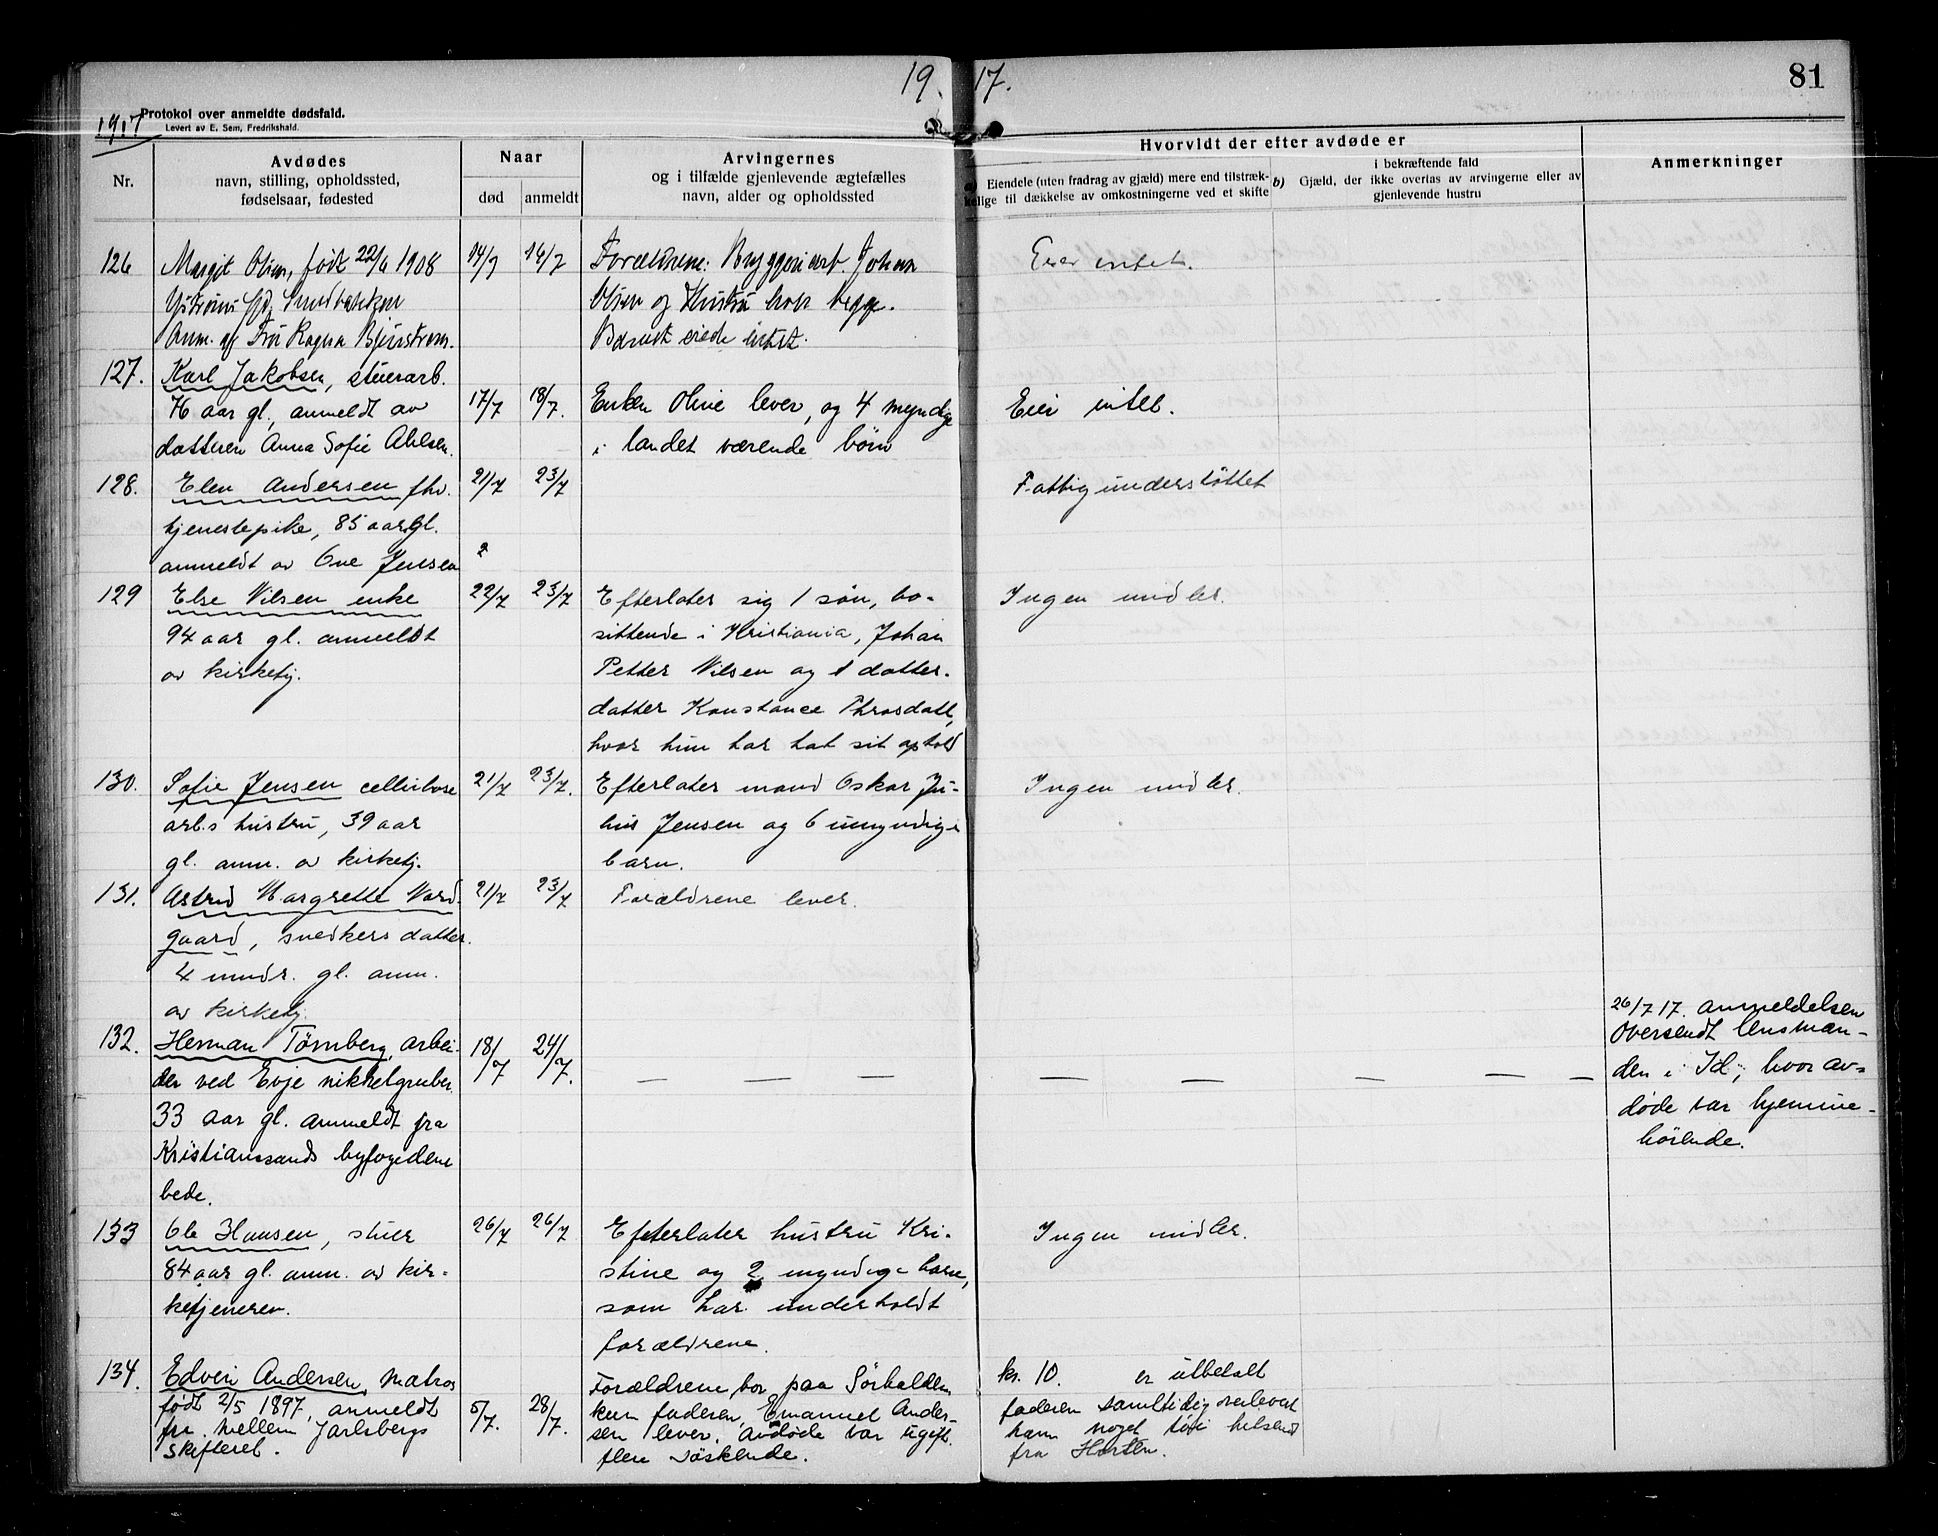 19 17.
81
1917
Protokol over anmeldte dødsfald.
Levert av E. Sem, Fredrikshald.
Nr.
Avdødes
navn, stilling, opholdssted,
fødselsaar, fødested
Naar
død
anmeldt
Arvingernes
og i tilfælde gjenlevende ægtefælles
navn, alder og opholdssted
Hvorvidt der efter avdøde er
Eiendele (uten fradrag av gjæld) mere end tilstræk-
kelige til dækkelse av omkostningerne ved et skifte
b)
i bekræftende fald
Gjæld, der ikke overtas av arvingerne eller av
gjenlevende hustru
Anmerkninger
126
Margit Olsen, født 22/6 1908
Anm. af Fru Ragna Bjurstrøm.
14/7
14/7
Forældrene: Bryggeriarb. Johan
Olsen og Hustru begge.
Barnet eiede intet.
Eier intet.
127.
Karl Jakobsen, stuerarb.
76 aar gl, anmeldt av
datteren Anna Sofie Ahlsen.
17/7
18/7.
Enken Oline lever, og 4 myndige
i landet værende børn
Eier intet.
128.
Elen Andersen fhv.
tjenestepike, 85 aar gl.
anmeldt av Ove Jensen
21/7
23/7
Fattigunderstøttet
129
Else Nilsen enke
94 aar gl. anmeldt
av kirketj.
22/7
23/7
Efterlater sig 1 søn, bo-
sittende i Kristiania, Johan
Petter Nilsen og 1 datter-
datter Konstance
hvor hun har hat sit ophold
Ingen midler.
130.
Sofie Jensen cellulose
arb.s hustru, 39 aar
gl. anm. av kirketj.
21/7
23/7.
Efterlater mand Oskar Ju-
lius Jensen og 6 umyndige
barn.
Ingen midler.
131.
Astrid Margrethe Nord-
gaard, snedkers datter.
4 mndr. gl. anm.
av kirketj.
21/7
23/7
Forældrene lever.
132.
Herman Tørnberg, arbei-
der ved Evje nikkelgruber
33 aar gl. anmeldt fra
Kristianssands byfogedem-
bede.
18/7
24/7.
— — — — — — — —
26/7 17. Anmeldelsen
oversendt lensman-
den i Id, hvor av-
døde var hjemme-
hørende.
133
Ole Hansen, stuer
84 aar gl. anm. av kir-
ketjeneren.
26/7
26/7
Efterlater hustru Kri-
stine og 2 myndige barn,
som har underholdt
forældrene.
Ingen midler.
134.
Edvin Andersen, matros
født 2/5 1897, anmeldt
fra mellem Jarlsbergs
skifteret.
5/7.
28/7.
Forældrene bor paa Sørhalden
kun faderen, Emanuel Ander-
sen lever. Avdøde var ugift.
flere søskende.
kr. 10. er utbetalt
faderen samtidig overlevert
ham noget tøi
fra Horten.